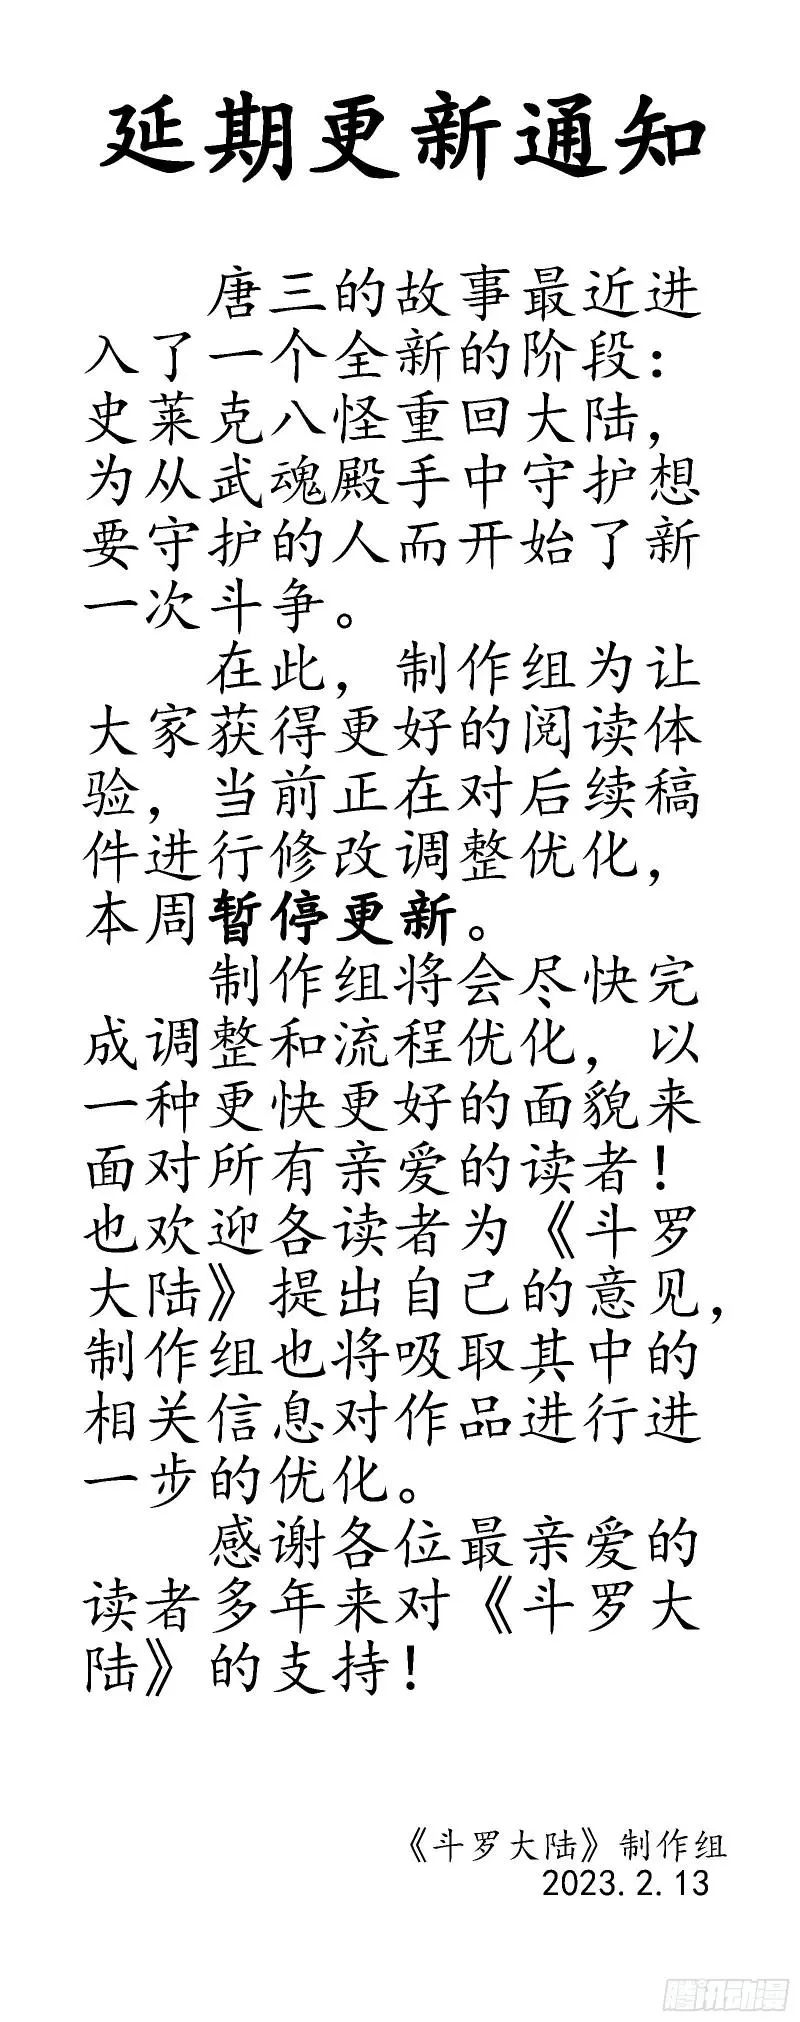 延期更新通知
唐三的故事最近进
入了一个全新的阶段：
史莱克八怪重回大陆，
为从武魂殿手中守护想
要守护的人而开始了新
一次斗争。
在此，制作组为让
大家获得更好的阅读体
验，当前正在对后续稿
件进行修改调整优化，
本周暂停更新。
制作组将会尽快完
成调整和流程优化，以
一种更快更好的面貌来
面对所有亲爱的读者！
也欢迎各读者为《斗罗
大陆》提出自己的意见，
制作组也将吸取其中的
相关信息对作品进行进
一步的优化。
感谢各位最亲爱的
读者多年来对《斗罗大
陆》的支持！
《斗罗大陆》制作组
2023.2.13
腾讯动漫